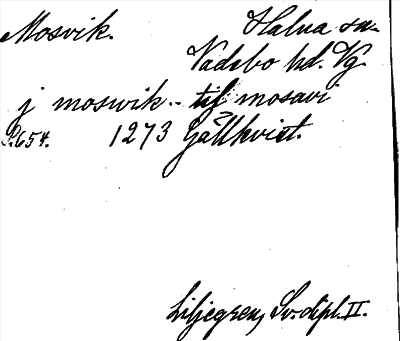 Mosvik. Halna sn.
Vadsbo hd. Vg.
j moswik - til mosavi
S. 654. 1273 Gällkvist.
Liljegren, Sv. dipl. II.